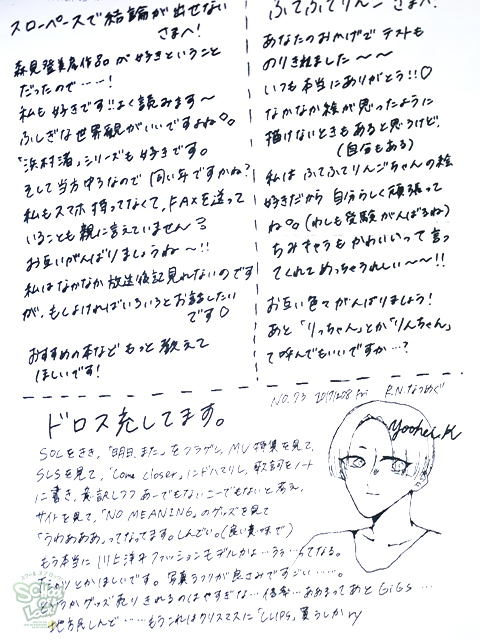 スローペースで結論が出せない
さまへ!
森見登美彦作品が好きということ
だったので……!
私も好きです!!よく読みます〜
ふしぎな世界観がいいですよね。
「浜村渚」シリーズも好きです。
そして当方中3なので同い年ですかね?
私もスマホ持ってなくて、FAXを送って
いることも親に言えていません?
お互いがんばりましょうね〜!!
私はなかなか放送後記見れないのです
が、もしよければいろいろとお話したい
です♡
おすすめの本など もっと教えて
ほしいです!
ふてふてりんごさまへ!
あなたのおかげでテストも
のりきれました〜〜
いつも本当にありがとう!!♡
なかなか絵が思ったように
描けないときもあると思うけど、
(自分もある)
私はふてふてりんごちゃんの絵
好きだから 自分らしく頑張って
ね。(わしも受験がんばるね)
ちみきゃらもかわいいって言っ
てくれてめっちゃうれしい〜〜!!
お互い色々がんばりましょう!
あと「りっちゃん」とか「りんちゃん」
て呼んでもいいですか…?
No.73 2017.12.08 Fri R.N.なつめぐ
ドロス充してます。
Yoohei.K
SOLをきき、「明日、また」をフラゲし、MV特集を見て、
SLSを見て、「Come Closer」にドハマりし、歌詞をノート
に書き、意訳しつつあーでもないこーでもないと考え、
サイトを見て、「NO MEANING」のグッズを見て
「うわあああ」ってなってます。しんどい。(良い意味で)
もう本当に川上洋平ファッションモデルかよ…うっ…ってなる。
とかほしいです。写真うつりが良さみですごい……。
グッズ売りきれるのはやすぎな…信奉…ああるってあとGiGS…
地方民しんど……もうこれはクリスマスに「CLIPS」買うしかry